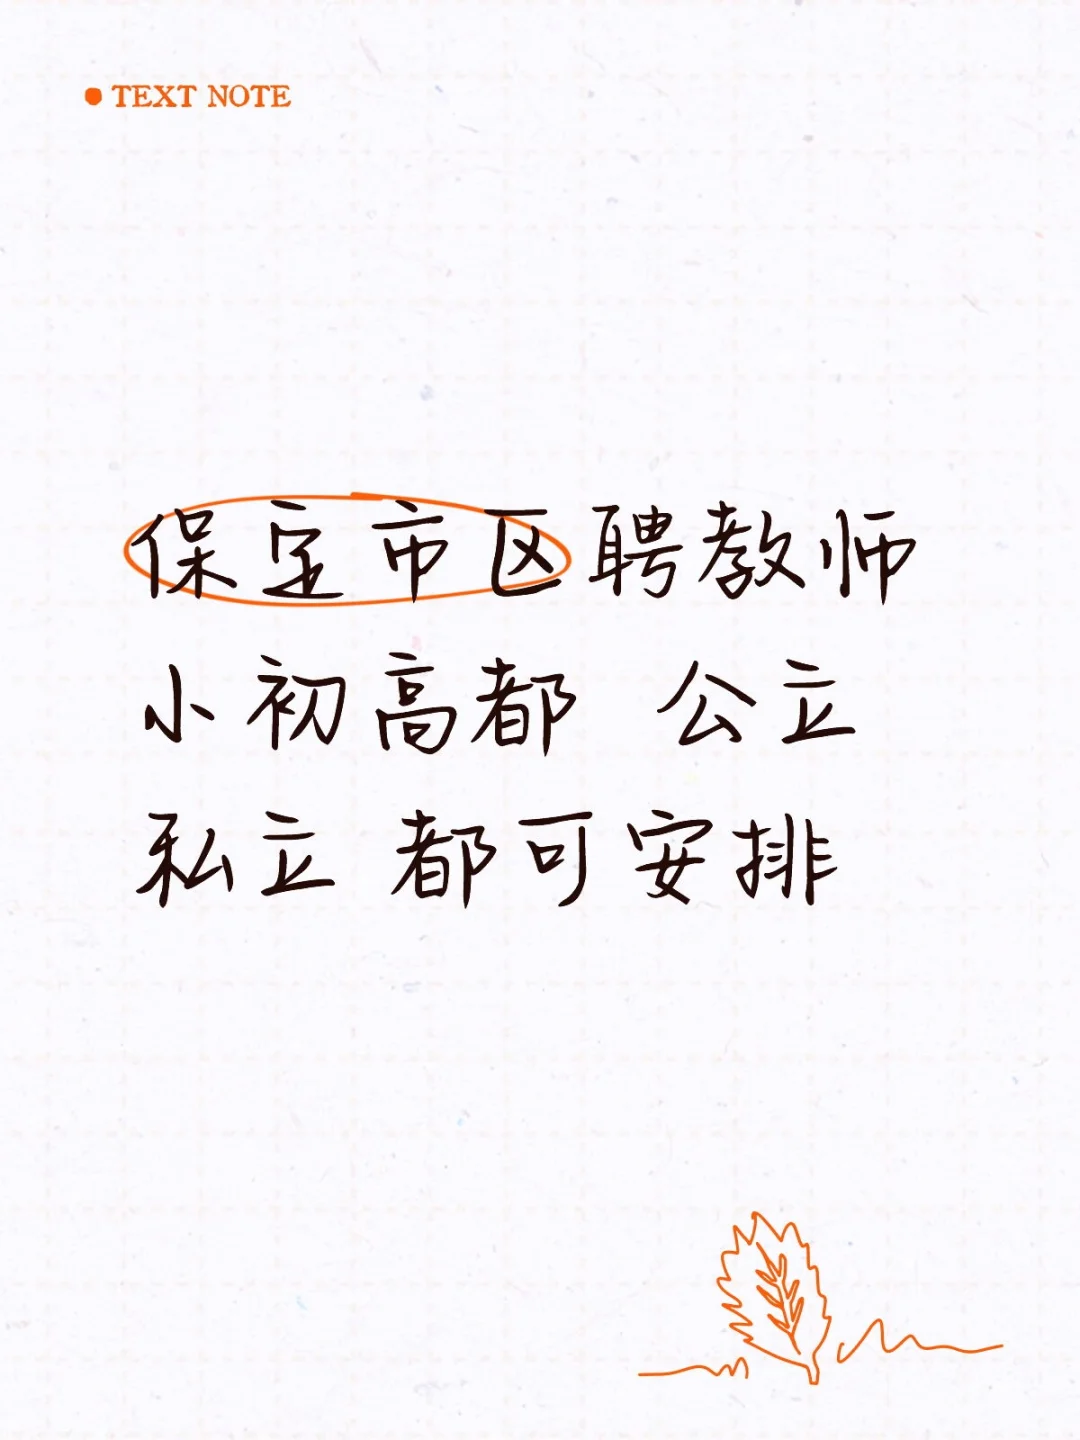 TEXT NOTE
保定市区聘教师
小初高都 公立
私立 都可安排